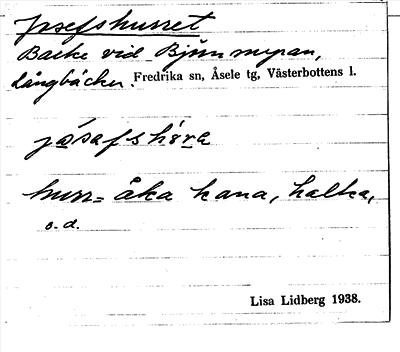 Josefshurret
Backe vid Björnmyran,
Långbäcken. Fredrika sn, Åsele tg, Västerbottens l.
hurr = åka kana, halka,
o. d.
Lisa Lidberg 1938.